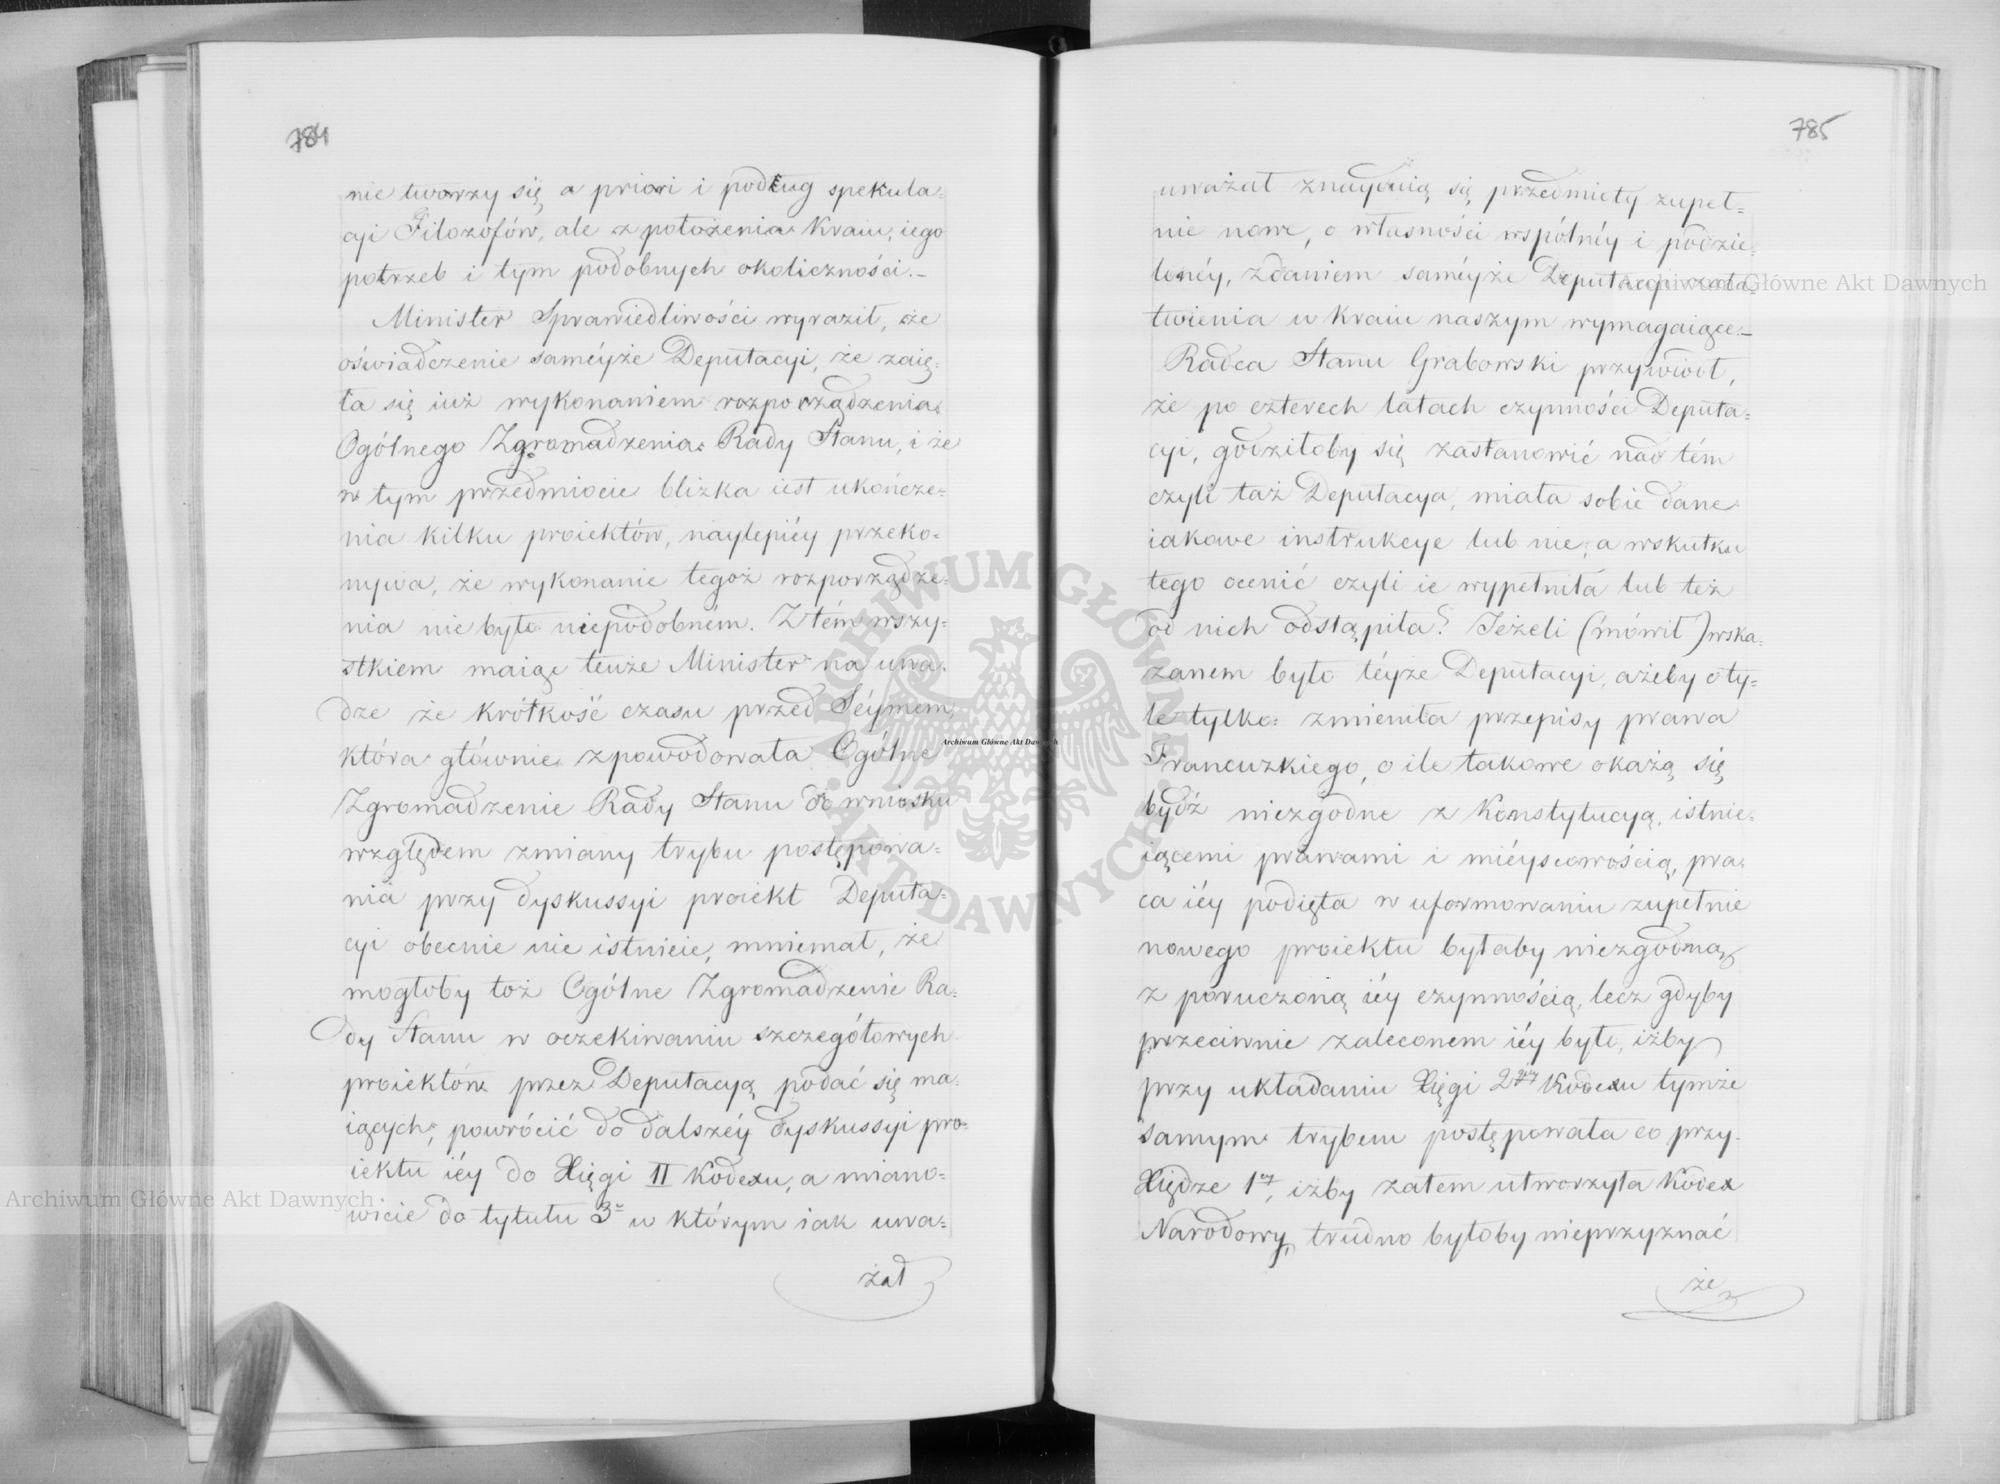 784
nie tworzy się a priori i podług spekula=
cji Filozofów, ale z położenia Kraiu, iego
potrzeb i tym podobnych okoliczności.–
Minister Sprawiedliwości wyraził, że
oświadczenie saméyże Deputacyi, że zaię=
ła się iuż wykonaniem rozporządzenia
Ogólnego Zgromadzenia Rady Stanu, i że
w tym przedmiocie blizka iest ukończe=
nia kilku proiektów, naylepiéy przeko=
nywa, że wykonanie tegoż rozporządze=
nia nie było niepodobném. Z tém wszy=
stkiem maiąc tenże Minister na uwa=
dze że krótkość czasu przed Séymem,
która głównie spowodowała Ogólne
Zgromadzenie Rady Stanu do wniosku
względem zmiany trybu postępowa=
nia przy dyskussyi proiekt Deputa=
cyi obecnie nie istnieie, mniemał, że
mogłoby toż Ogólne Zgromadzenie Ra=
dy Stanu w oczekiwaniu szczegółowych
proiektów przez Deputacyą podać się ma=
iących, powrócić do dalszéy dyskussyi pro=
iektu iéy do Xięgi II Kodexu, a miano=
wicie do tytułu 3º w którym iak uwa=
żał
785
uważał znayduią się przedmioty zupeł=
nie nowe, o własności wspólnéy i podzie=
lonéy, zdaniem saméyże Deputacyi zała=
twienia w Kraiu naszym wymagaiące.–
Radca Stanu Grabowski przywiódł,
że po czterech latach czynności Deputa=
cyi, godziłoby się zastanowić nad tém
czyli taż Deputacya, miała sobie dane
iakowe instrukcye lub nie, a wskutku
tego ocenić czyli ie wypełniła lub też
od nich odstąpiła? Jeżeli (mówił) wska=
zanem było téyże Deputacyi, ażeby o ty=
le tylko zmieniła przepisy prawa
Francuzkiego, o ile takowe okażą się
bydź niezgodne z Konstytucyą, istnie=
iącemi prawami i miéyscowością, pra=
ca iéy podięta w uformowaniu zupełnie
nowego proiektu byłaby niezgodną
z poruczoną iéy czynnością, lecz gdyby
przeciwnie zaleconem iéy było, iżby
przy układaniu Xięgi 2giéy Kodexu tymże
samym trybem postępowała co przy
Xiędze 1éy, iżby zatem utworzyła Kodex
Narodowy, trudno byłoby nieprzyznać
że
Archiwum Główne Akt Dawnych
Archiwum Główne Akt Dawnych
Archiwum Główne Akt Dawnych
ARCHIWUM GŁÓWNE · AKT DAWNYCH ·